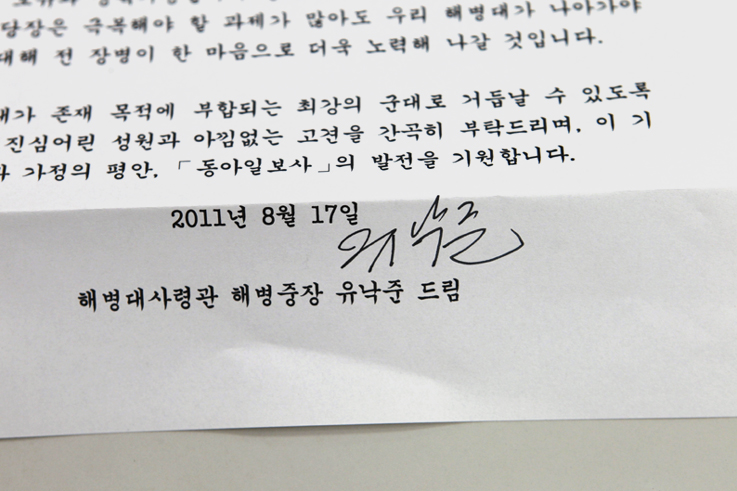 당장은 극복해야 할 과제가 많아도 우리 해병대가 나아가야
대해 전 장병이 한 마음으로 더욱 노력해 나갈 것입니다.
존재 목적에 부합되는 최강의 군대로 거듭날 수 있도록
진심어린 성원과 아낌없는 고견을 간곡히 부탁드리며, 이 기
가정의 평안, 「동아일보사」의 발전을 기원합니다.
2011년 8월 17일
해병대사령관 해병중장 유낙준 드림